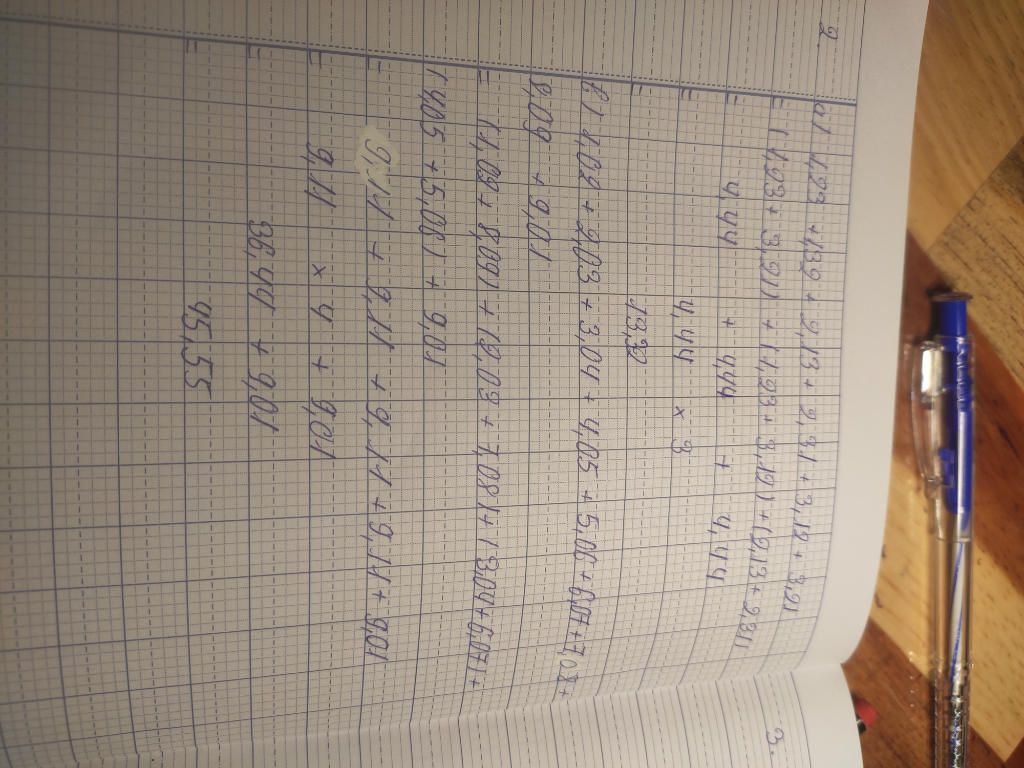 2. a) 1,23 + 1,32 + 2,13 + 2,31 + 3,12 + 3,21
= (1,23 + 3,21) + (1,32 + 3,12) + (2,13 + 2,31)
= 4,44 + 4,44 + 4,44
= 4,44 x 3
= 13,32
b) 1,02 + 2,03 + 3,04 + 4,05 + 5,06 + 6,07 + 7,08 +
8,09 + 9,01
= (1,02 + 8,09) + (2,03 + 7,08) + (3,04 + 6,07) +
(4,05 + 5,06) + 9,01
= 9,11 + 9,11 + 9,11 + 9,11 + 9,01
= 9,11 x 4 + 9,01
= 36,44 + 9,01
= 45,55
3.